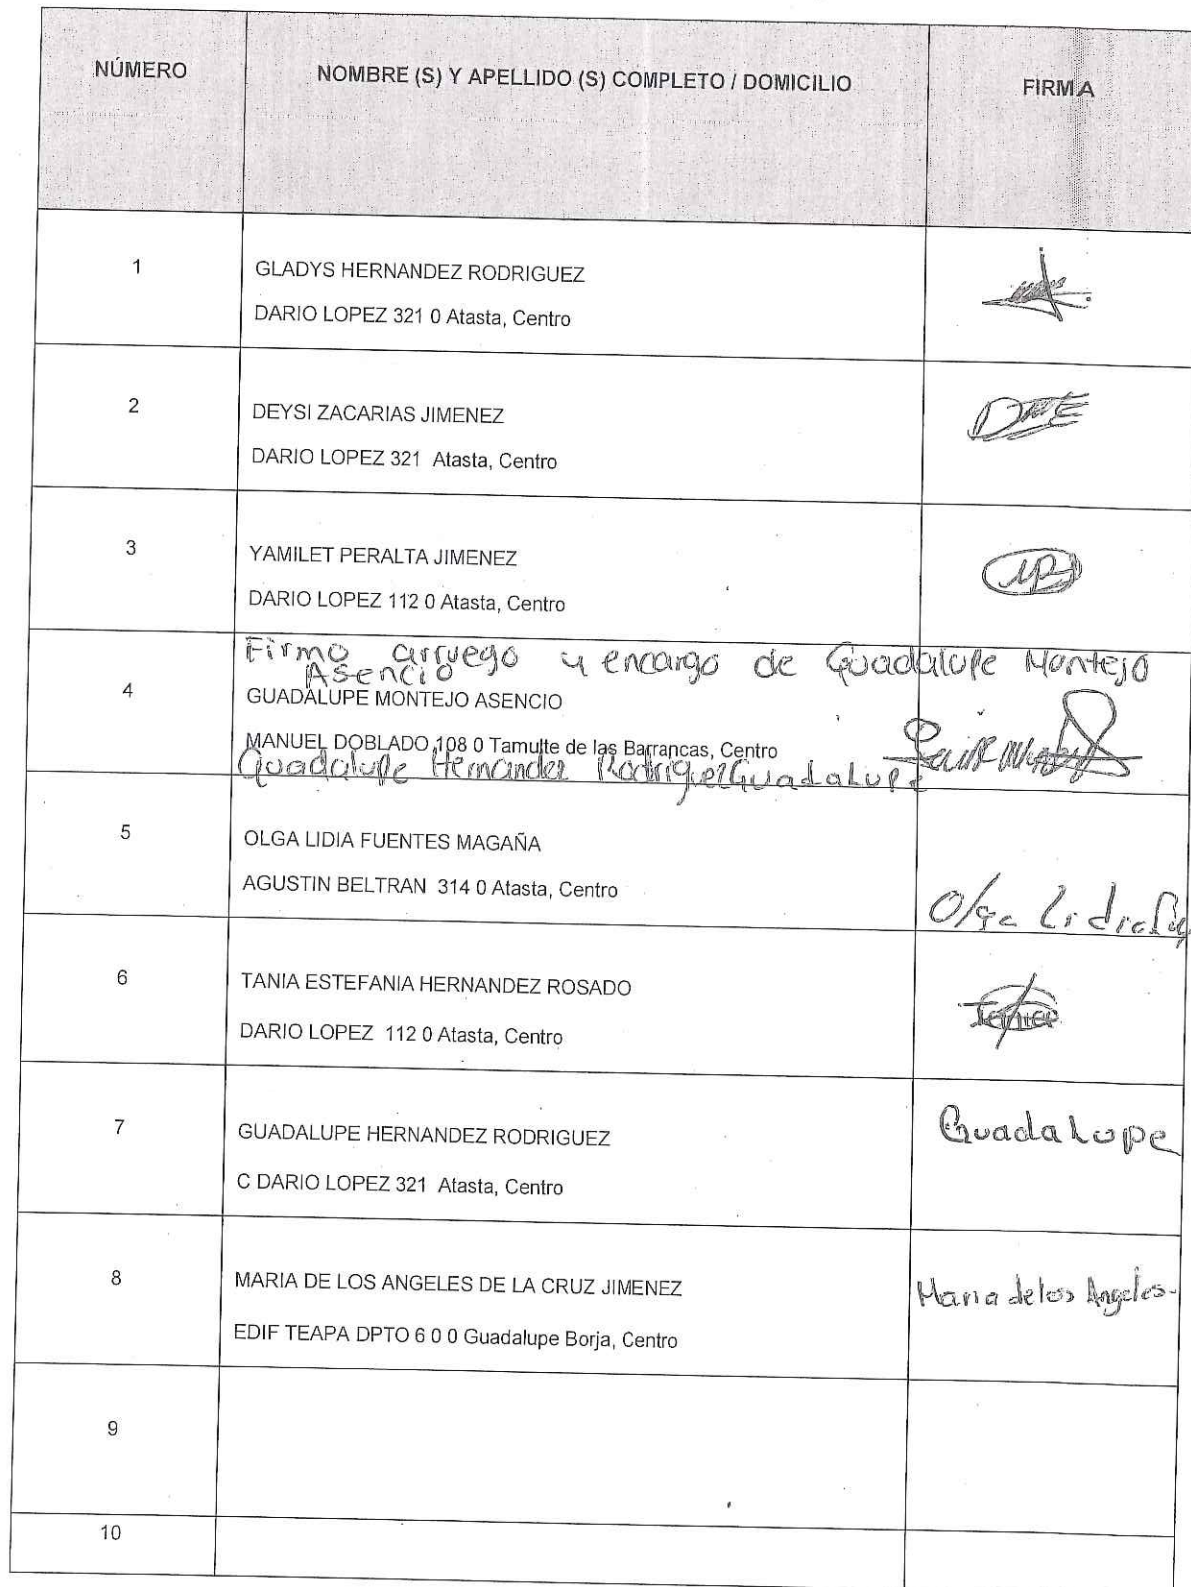 NÚMERO
NOMBRE (S) Y APELLIDO (S) COMPLETO / DOMICILIO
FIRMA
1
GLADYS HERNANDEZ RODRIGUEZ
DARIO LOPEZ 321 0 Atasta, Centro
2
DEYSI ZACARIAS JIMENEZ
DARIO LOPEZ 321 Atasta, Centro
3
YAMILET PERALTA JIMENEZ
DARIO LOPEZ 112 0 Atasta, Centro
Firmo arruego y encargo de Guadalupe Montejo
Asencio
4
GUADALUPE MONTEJO ASENCIO
MANUEL DOBLADO 108 0 Tamulte de las Barrancas, Centro
Guadalupe Hernandez Rodriguez Guadalupe
5
OLGA LIDIA FUENTES MAGAÑA
AGUSTIN BELTRAN 314 0 Atasta, Centro
Olga Lidia
6
TANIA ESTEFANIA HERNANDEZ ROSADO
DARIO LOPEZ 112 0 Atasta, Centro
7
GUADALUPE HERNANDEZ RODRIGUEZ
C DARIO LOPEZ 321 Atasta, Centro
Guadalupe
8
MARIA DE LOS ANGELES DE LA CRUZ JIMENEZ
EDIF TEAPA DPTO 6 0 0 Guadalupe Borja, Centro
Maria de los Angeles-
9
10